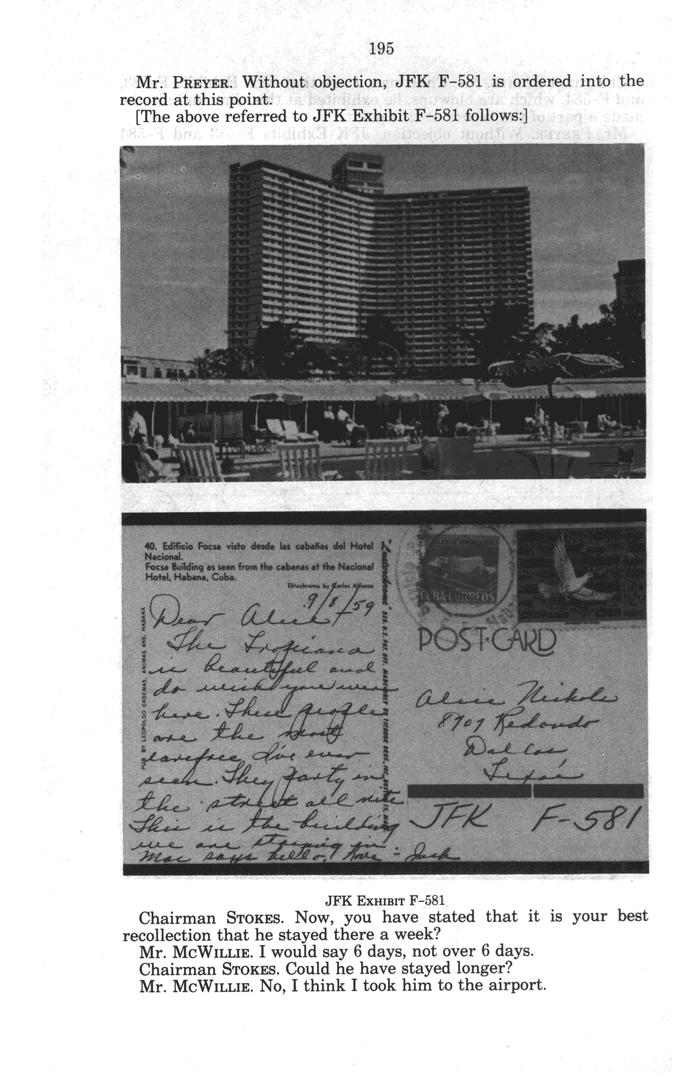 195
Mr. PREYER. Without objection, JFK F-581 is ordered into the
record at this point.
[The above referred to JFK Exhibit F-581 follows:]
40. Edificio Focsa visto desde las cabañas del Hotel
Nacional.
Focsa Building as seen from the cabanas at the National
Hotel, Habana, Cuba.
Ektachrome by Carlos Alfonso
9/8/59
Dear Alice,
The Tropicana
is beautiful and
do wish you were
here. These people
are the most
carefree I've ever
seen. They party in
the street all nite
This is the building
we are staying in
Mac says hello, Love - Jack
PUB BY LEOPOLDO CADENAS, ANIMAS 455, HABANA
CUBA CORREOS
POST-CARD
Alice Nichols
8707 Redondo
Dallas
Texas
JFK F-581
JFK EXHIBIT F-581
Chairman STOKES. Now, you have stated that it is your best
recollection that he stayed there a week?
Mr. MCWILLIE. I would say 6 days, not over 6 days.
Chairman STOKES. Could he have stayed longer?
Mr. MCWILLIE. No, I think I took him to the airport.